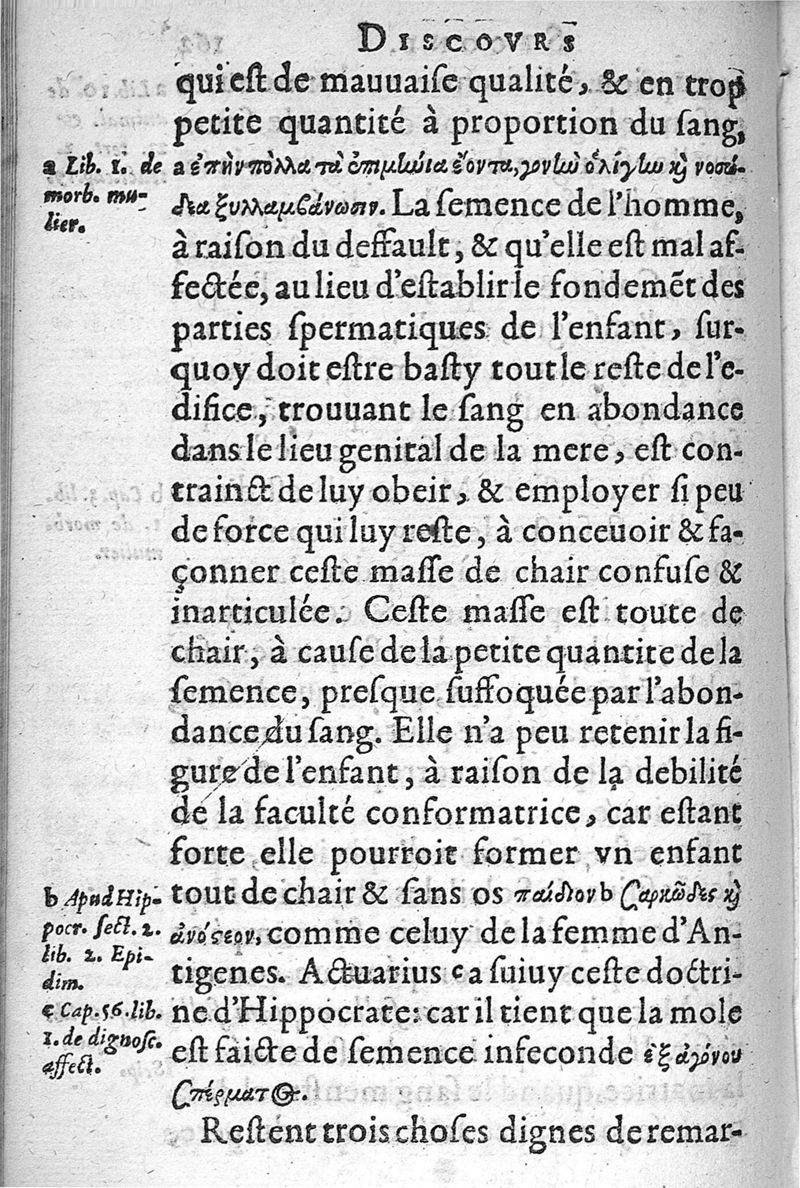 DISCOVRS
qui eſt de mauuaiſe qualité, & en trop
petite quantité à proportion du ſang,
a Lib. 1. de
morb. mu-
lier.
a ἐπὴν πολλὰ τὰ ἐπιμλώια ἐόντα, γονὼ ὀλίγλω καὶ νοσώ-
δεα ξυλλαμβάνωσιν. La ſemence de l'homme,
à raiſon du deffault, & qu'elle eſt mal af-
fectée, au lieu d'eſtablir le fondemẽt des
parties ſpermatiques de l'enfant, ſur-
quoy doit eſtre baſty tout le reſte de l'e-
difice, trouuant le ſang en abondance
dans le lieu genital de la mere, eſt con-
trainct de luy obeir, & employer ſi peu
de force qui luy reſte, à conceuoir & fa-
çonner ceſte maſſe de chair confuſe &
inarticulée. Ceſte maſſe eſt toute de
chair, à cauſe de la petite quantite de la
ſemence, preſque ſuffoquée par l'abon-
dance du ſang. Elle n'a peu retenir la fi-
gure de l'enfant, à raiſon de la debilité
de la faculté conformatrice, car eſtant
forte elle pourroit former vn enfant
b Apud Hip-
pocr. ſect. 2.
lib. 2. Epi-
dim.
tout de chair & ſans os παίδιον b σαρκῶδες καὶ
ἀνόστεον, comme celuy de la femme d'An-
tigenes. Actuarius c a ſuiuy ceſte doctri-
c Cap. 56. lib.
1. de dignoſc.
affect.
ne d'Hippocrate: car il tient que la mole
eſt faicte de ſemence infeconde ἐξ ἀγόνου
σπέρματος.
Reſtent trois choſes dignes de remar-